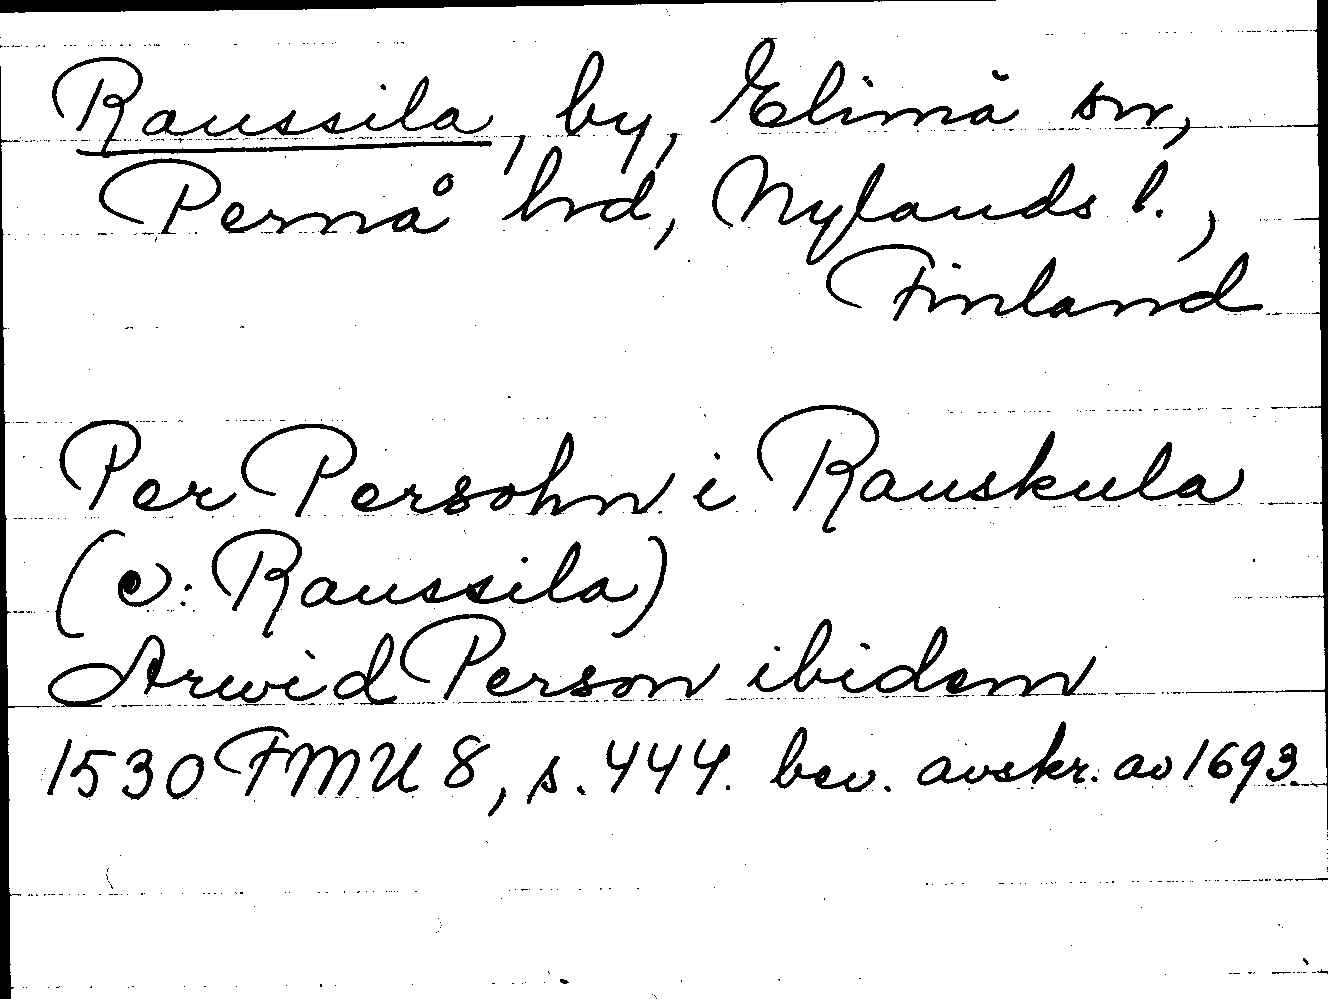 Raussila, by, Elimä sn,
Pernå hrd, Nylands l.,
Finland
Per Persohn i Rauskula
(ɔ: Raussila)
Arwid Person ibidem
1530 FMU 8, s. 444. bev. avskr. av 1693.